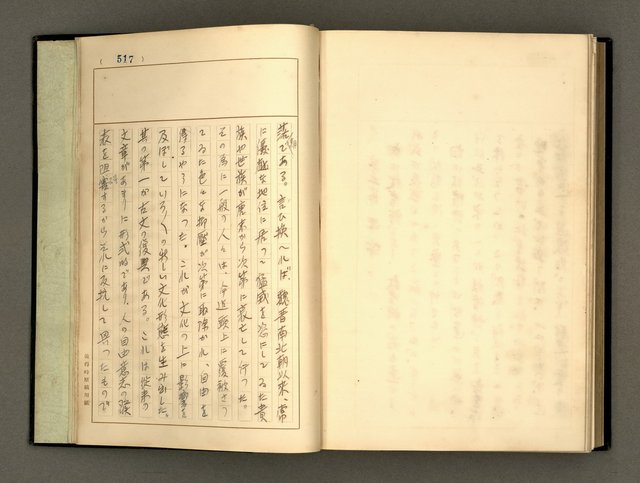 (517)
落である。言ひ換へれば、魏晋南北朝以来、常
に優越な地位に居つて猛威を恣にしてゐた貴
族や世族が唐末から次第に衰亡して行つた。
その為に一般の人々は、今迄頭上に覆
てゐた色々な抑壓が次第に取除かれ、自由を
得るやうになつた。これが文化の上に影響を
及ぼしていろ〳〵の新しい文化形態を生み出した。
其の第一が古文の復興である。これは従来の
文章があまりに形式的であり、人の自由意志の發
表を阻害するから、それに反抗して異つたもので